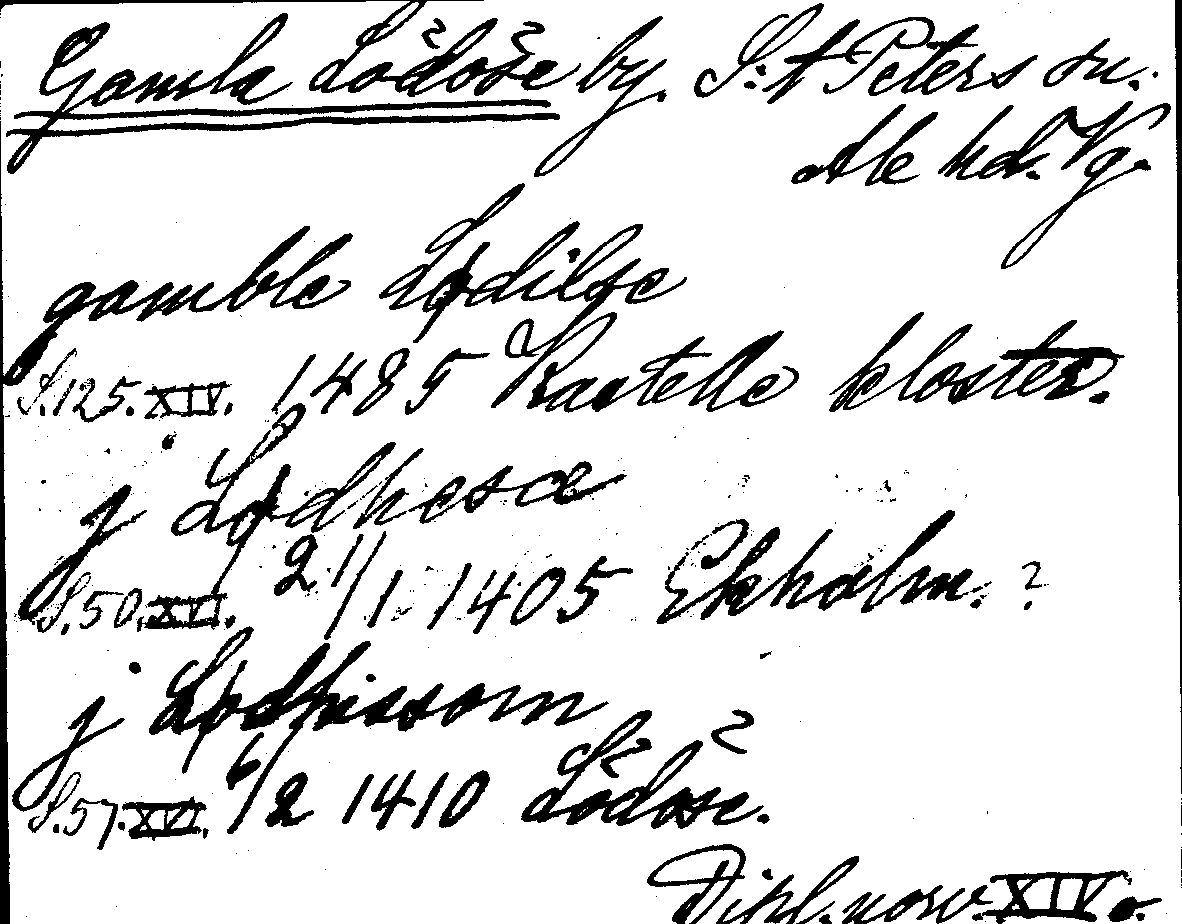 Gamla Lödöse by. S:t Peters sn.
Ale hd. Vg.
gamble Lødilse
S.125.XIV. 1485 Kastelle kloster.
j Lødhesæ
S.50.XVI. 21/1 1405 Ekholm.?
j Lødhissom
S.57.XVI. 6/2 1410 Lödöse.
Dipl. norv. XIV o.